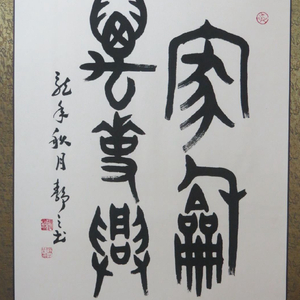 家龢
萬事興
龍年秋月靜之書